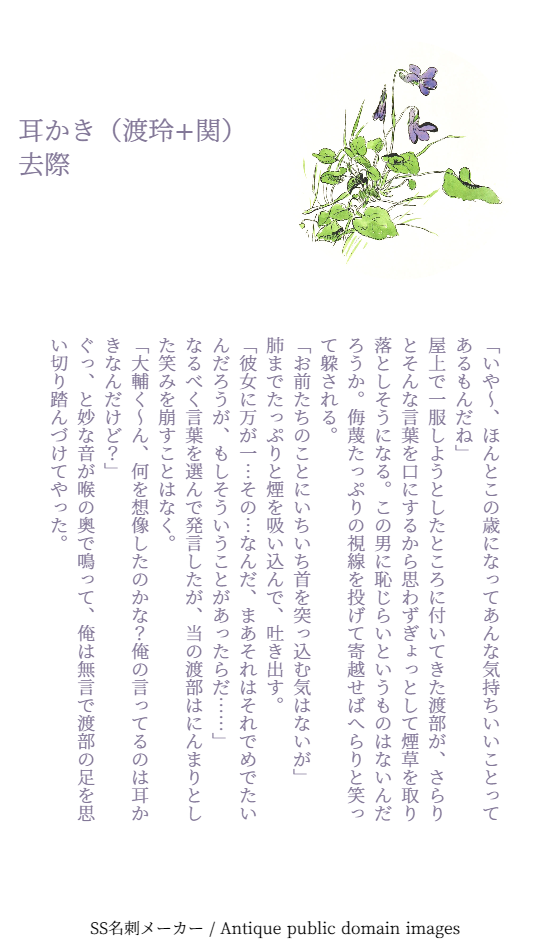 耳かき（渡玲+関）
去際
「いや〜、ほんとこの歳になってあんな気持ちいいことって
あるもんだね」
屋上で一服しようとしたところに付いてきた渡部が、さらり
とそんな言葉を口にするから思わずぎょっとして煙草を取り
落としそうになる。この男に恥じらいというものはないんだ
ろうか。侮蔑たっぷりの視線を投げて寄越せばへらりと笑っ
て躱される。
「お前たちのことにいちいち首を突っ込む気はないが」
肺までたっぷりと煙を吸い込んで、吐き出す。
「彼女に万が一…その…なんだ、まあそれはそれでめでたい
んだろうが、もしそういうことがあったらだ……」
なるべく言葉を選んで発言したが、当の渡部はにんまりとし
た笑みを崩すことはなく。
「大輔く〜ん、何を想像したのかな？俺の言ってるのは耳か
きなんだけど？」
ぐっ、と妙な音が喉の奥で鳴って、俺は無言で渡部の足を思
い切り踏んづけてやった。
SS名刺メーカー / Antique public domain images